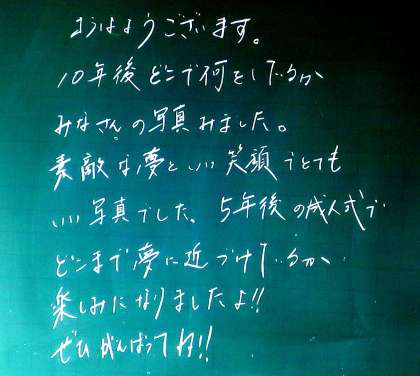 おはようございます。
10年後どこで何をしているか
みなさんの写真みました。
素敵な夢といい笑顔でとても
いい写真でした。5年後の成人式で
どこまで夢に近づけているか、
楽しみになりましたよ!!
ぜひがんばってね!!